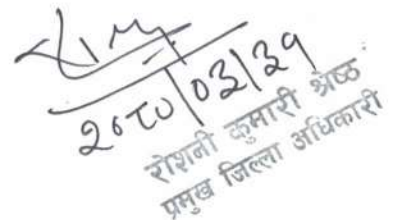 २०८०/०३/३१
रोशनी कुमारी श्रेष्ठ
प्रमुख जिल्ला अधिकारी